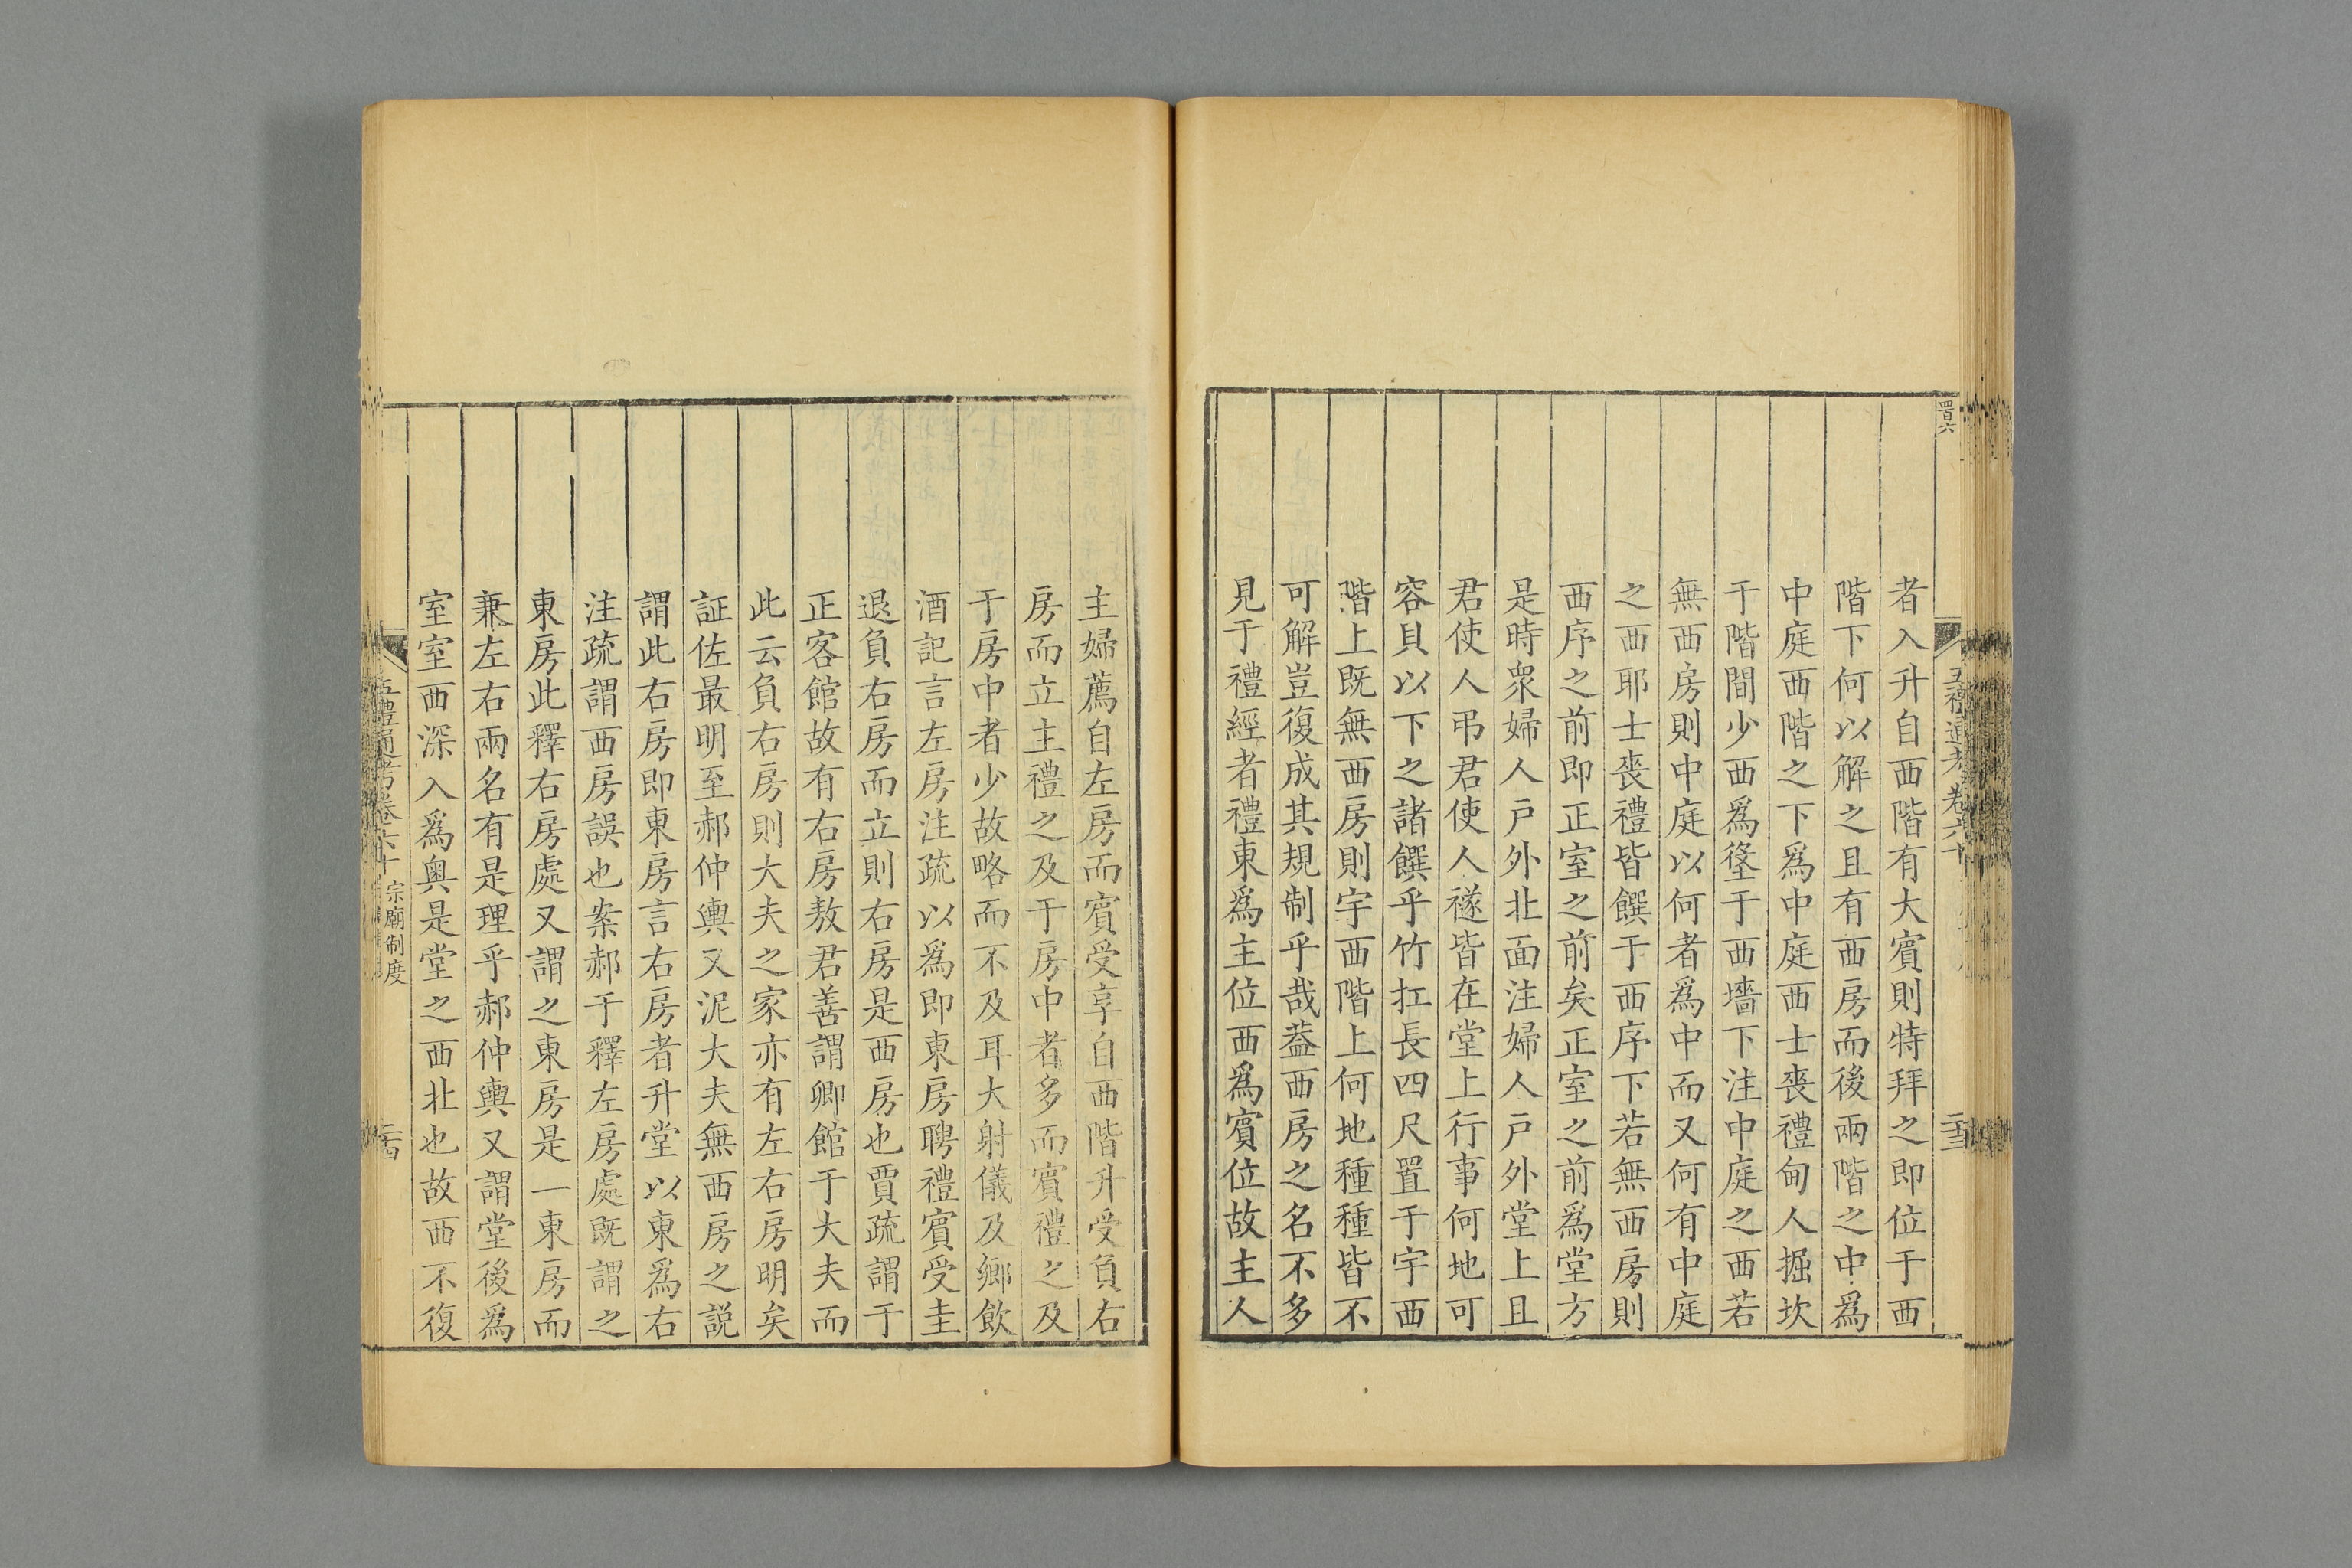 四百六
五禮通考卷六十
者入升自西階有大賓則特拜之即位于西
階下何以解之且有西房而後兩階之中爲
中庭西階之下爲中庭西士喪禮甸人掘坎
于階間少西爲垼于西墻下注中庭之西若
無西房則中庭以何者爲中而又何有中庭
之西耶士喪禮皆饌于西序下若無西房則
西序之前即正室之前矣正室之前爲堂方
是時衆婦人户外北面注婦人户外堂上且
君使人弔君使人襚皆在堂上行事何地可
容貝以下之諸饌乎竹扛長四尺置于宇西
階上既無西房則宇西階上何地種種皆不
可解豈復成其規制乎哉葢西房之名不多
見于禮經者禮東爲主位西爲賓位故主人
主婦薦自左房而賓受享自西階升受負右
房而立主禮之及于房中者多而賓禮之及
于房中者少故略而不及耳大射儀及鄉飲
酒記言左房注疏以爲即東房聘禮賓受圭
退負右房而立則右房是西房也賈疏謂于
正客館故有右房敖君善謂卿館于大夫而
此云負右房則大夫之家亦有左右房明矣
証佐最明至郝仲輿又泥大夫無西房之説
謂此右房即東房言右房者升堂以東爲右
注疏謂西房誤也案郝于釋左房處既謂之
東房此釋右房處又謂之東房是一東房而
兼左右兩名有是理乎郝仲輿又謂堂後爲
室室西深入爲奥是堂之西北也故西不復
五禮通考卷六十 宗廟制度